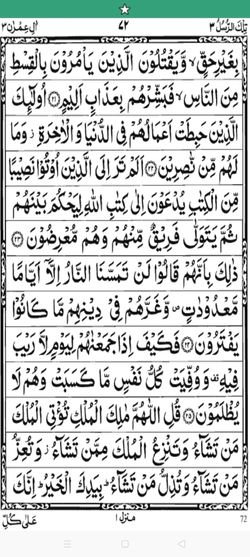 تِلْكَ الرُّسُلُ ٣ ٧٢ اٰلِ عِمْرٰن ٣
بِغَيْرِ حَقٍّ ۙ وَّ يَقْتُلُوْنَ الَّذِيْنَ يَاْمُرُوْنَ بِالْقِسْطِ
مِنَ النَّاسِ ۙ فَبَشِّرْهُمْ بِعَذَابٍ اَلِيْمٍ ﴿٢١﴾ اُولٰٓئِكَ
الَّذِيْنَ حَبِطَتْ اَعْمَالُهُمْ فِى الدُّنْيَا وَالْاٰخِرَةِ ۫ وَمَا
لَهُمْ مِّنْ نّٰصِرِيْنَ ﴿٢٢﴾ اَلَمْ تَرَ اِلَى الَّذِيْنَ اُوْتُوْا نَصِيْبًا
مِّنَ الْكِتٰبِ يُدْعَوْنَ اِلٰى كِتٰبِ اللّٰهِ لِيَحْكُمَ بَيْنَهُمْ
ثُمَّ يَتَوَلّٰى فَرِيْقٌ مِّنْهُمْ وَهُمْ مُّعْرِضُوْنَ ﴿٢٣﴾
ذٰلِكَ بِاَنَّهُمْ قَالُوْا لَنْ تَمَسَّنَا النَّارُ اِلَّاۤ اَيَّامًا
مَّعْدُوْدٰتٍ ۪ وَّغَرَّهُمْ فِىْ دِيْنِهِمْ مَّا كَانُوْا
يَفْتَرُوْنَ ﴿٢٤﴾ فَكَيْفَ اِذَا جَمَعْنٰهُمْ لِيَوْمٍ لَّا رَيْبَ
فِيْهِ ۟ وَوُفِّيَتْ كُلُّ نَفْسٍ مَّا كَسَبَتْ وَهُمْ لَا
يُظْلَمُوْنَ ﴿٢٥﴾ قُلِ اللّٰهُمَّ مٰلِكَ الْمُلْكِ تُؤْتِى الْمُلْكَ
مَنْ تَشَآءُ وَتَنْزِعُ الْمُلْكَ مِمَّنْ تَشَآءُ ۫ وَتُعِزُّ
مَنْ تَشَآءُ وَتُذِلُّ مَنْ تَشَآءُ ؕ بِيَدِكَ الْخَيْرُ ؕ اِنَّكَ
عَلٰى كُلِّ منزل ١ 72